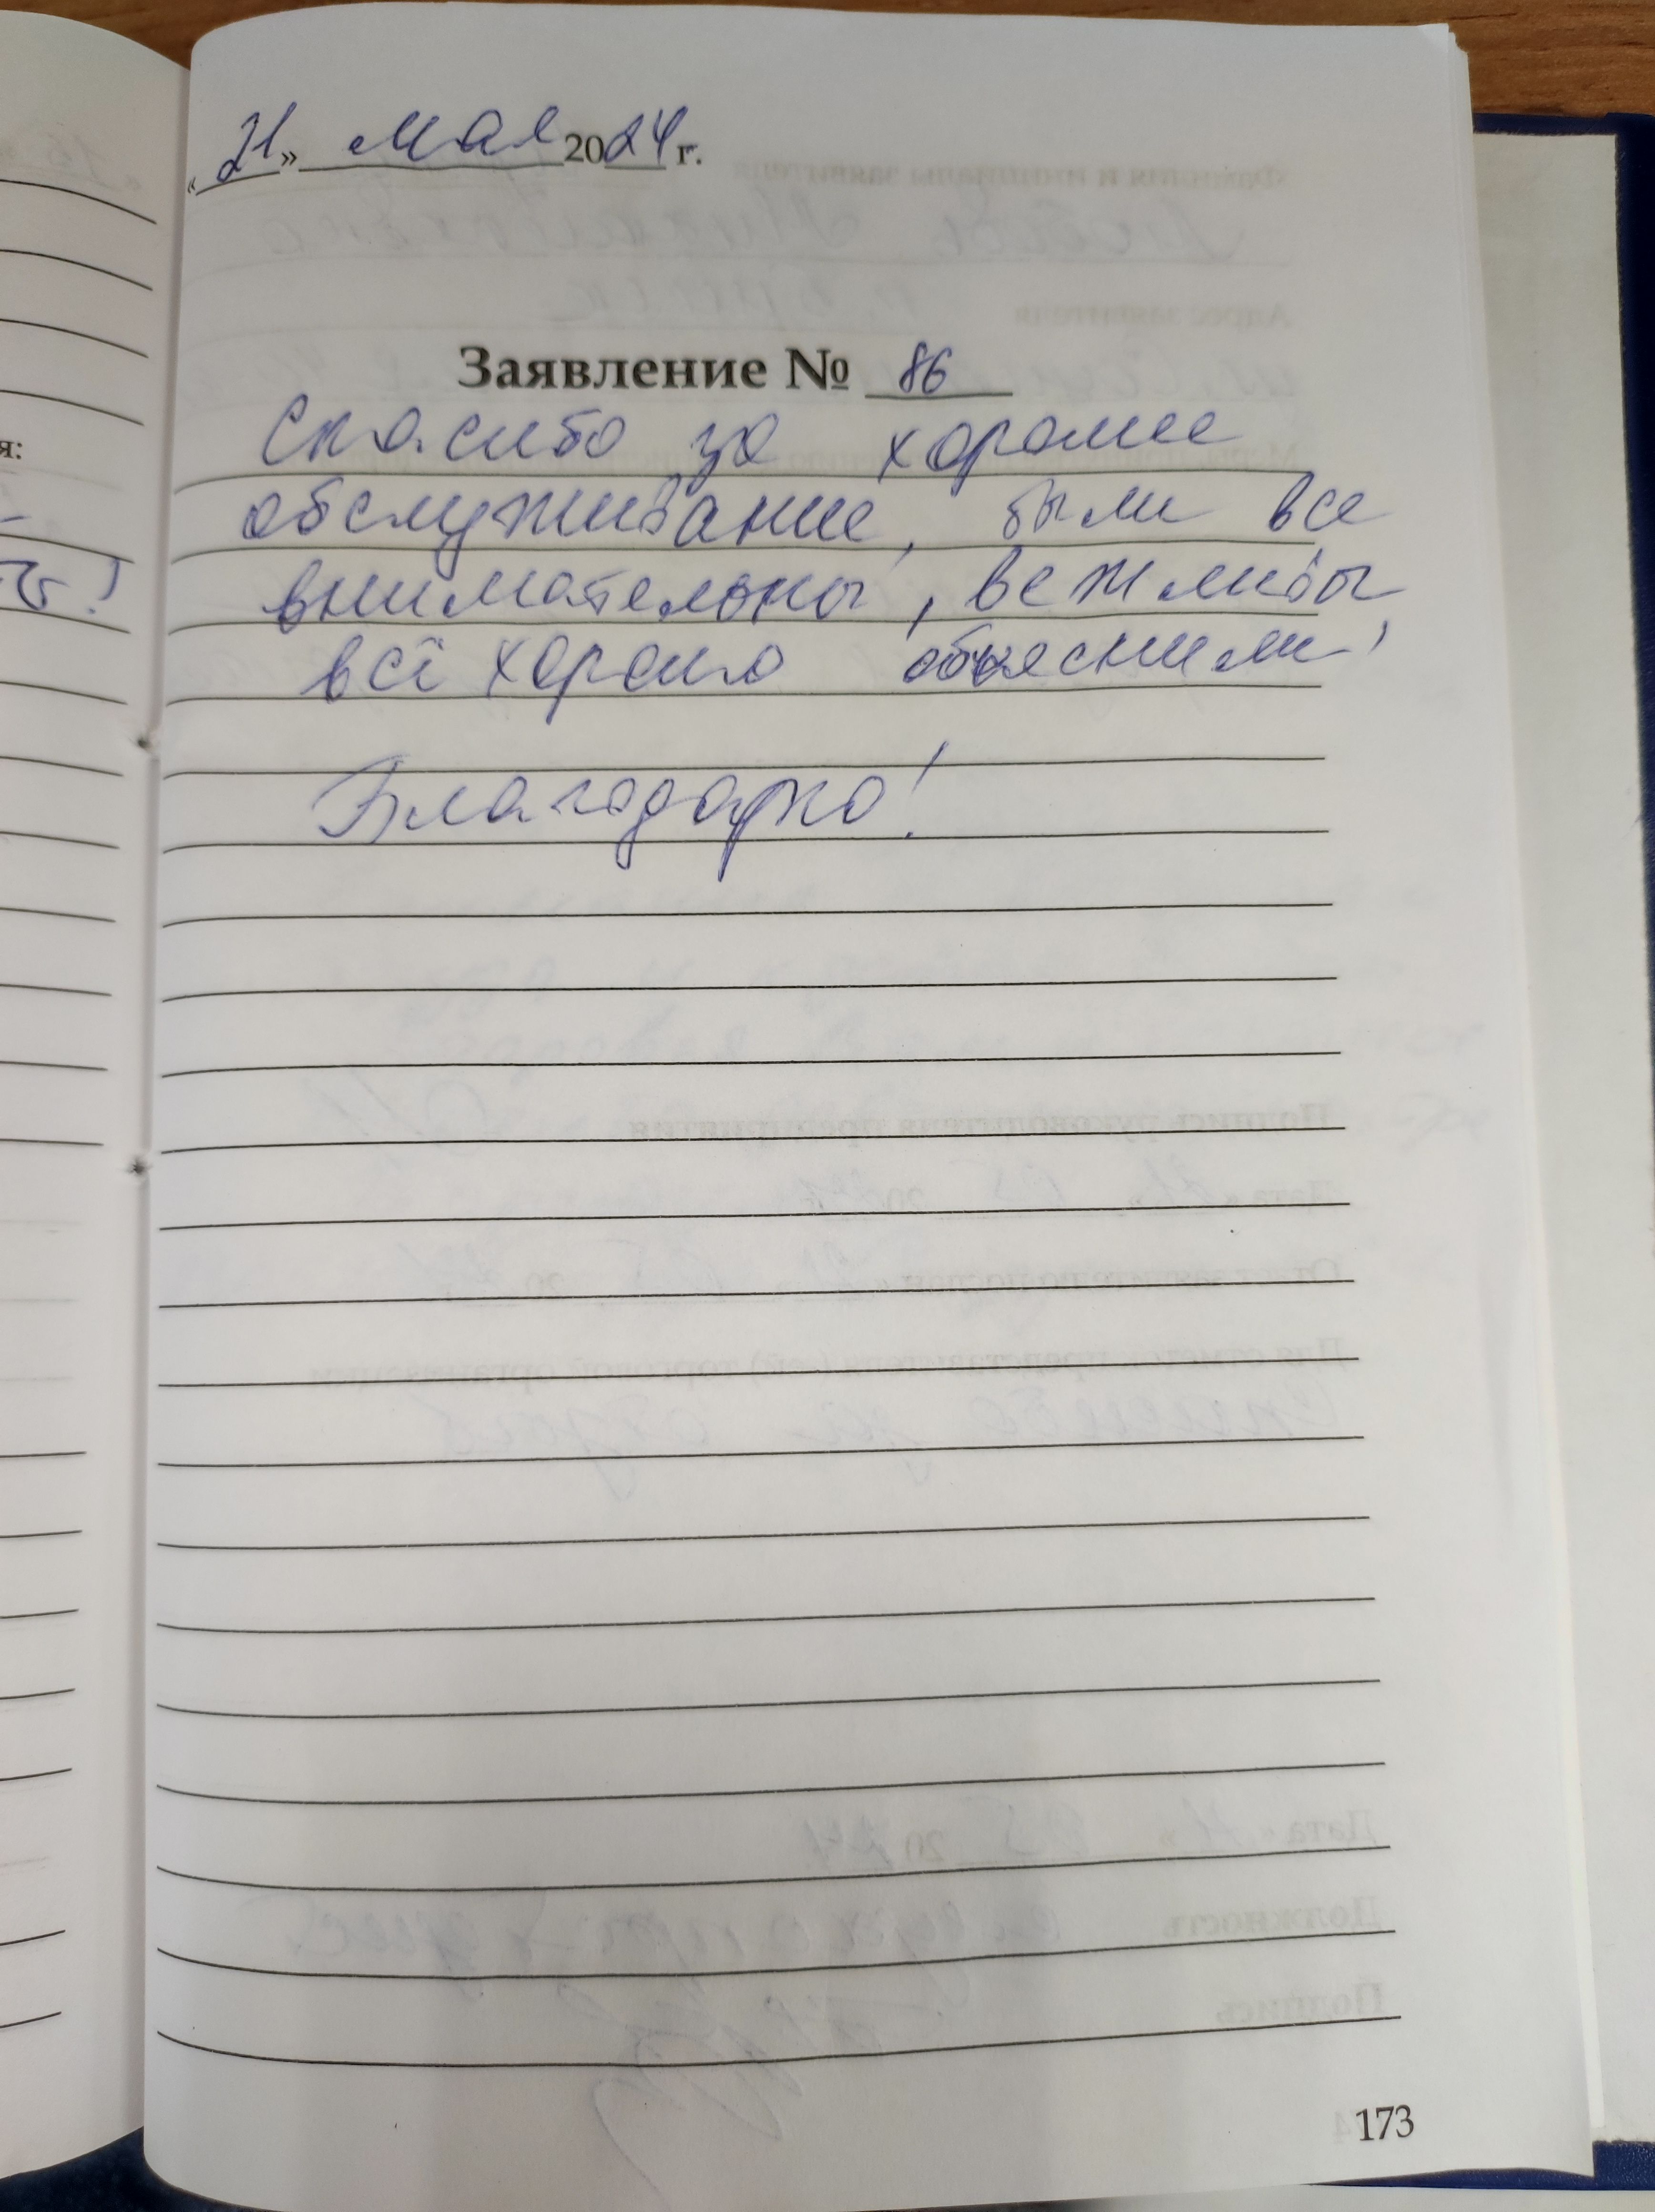 «21» мая 2024 г.
Заявление № 86
Спасибо за хорошее
обслуживание, были все
внимательны, вежливы,
всё хорошо объяснили
Благодарю!
173
я: